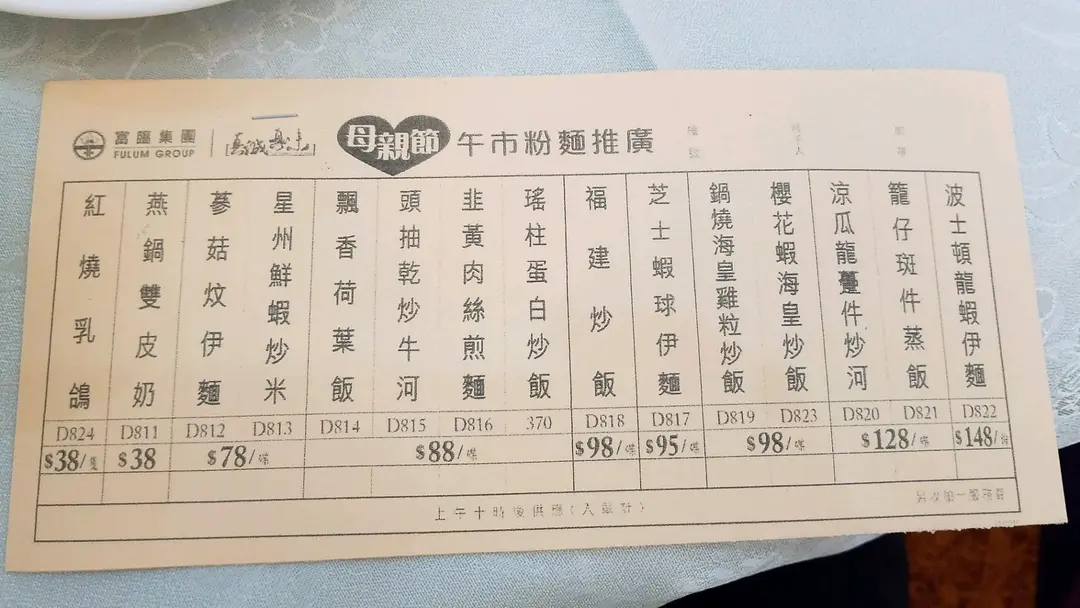 富臨集團
FULUM GROUP
母親節 午市粉麵推廣
波士頓龍蝦伊麵
D822
$148/
籠仔斑件蒸飯
D821
涼瓜龍躉件炒河
D820
$128/碟
櫻花蝦海皇炒飯
D823
鍋燒海皇雞粒炒飯
D819
$98/碟
芝士蝦球伊麵
D817
$95/碟
福建炒飯
D818
$98/碟
瑤柱蛋白炒飯
370
韭黃肉絲煎麵
D816
頭抽乾炒牛河
D815
飄香荷葉飯
D814
$88/碟
星州鮮蝦炒米
D813
蔘菇炆伊麵
D812
$78/碟
燕鍋雙皮奶
D811
$38
紅燒乳鴿
D824
$38/隻
另收加一服務費